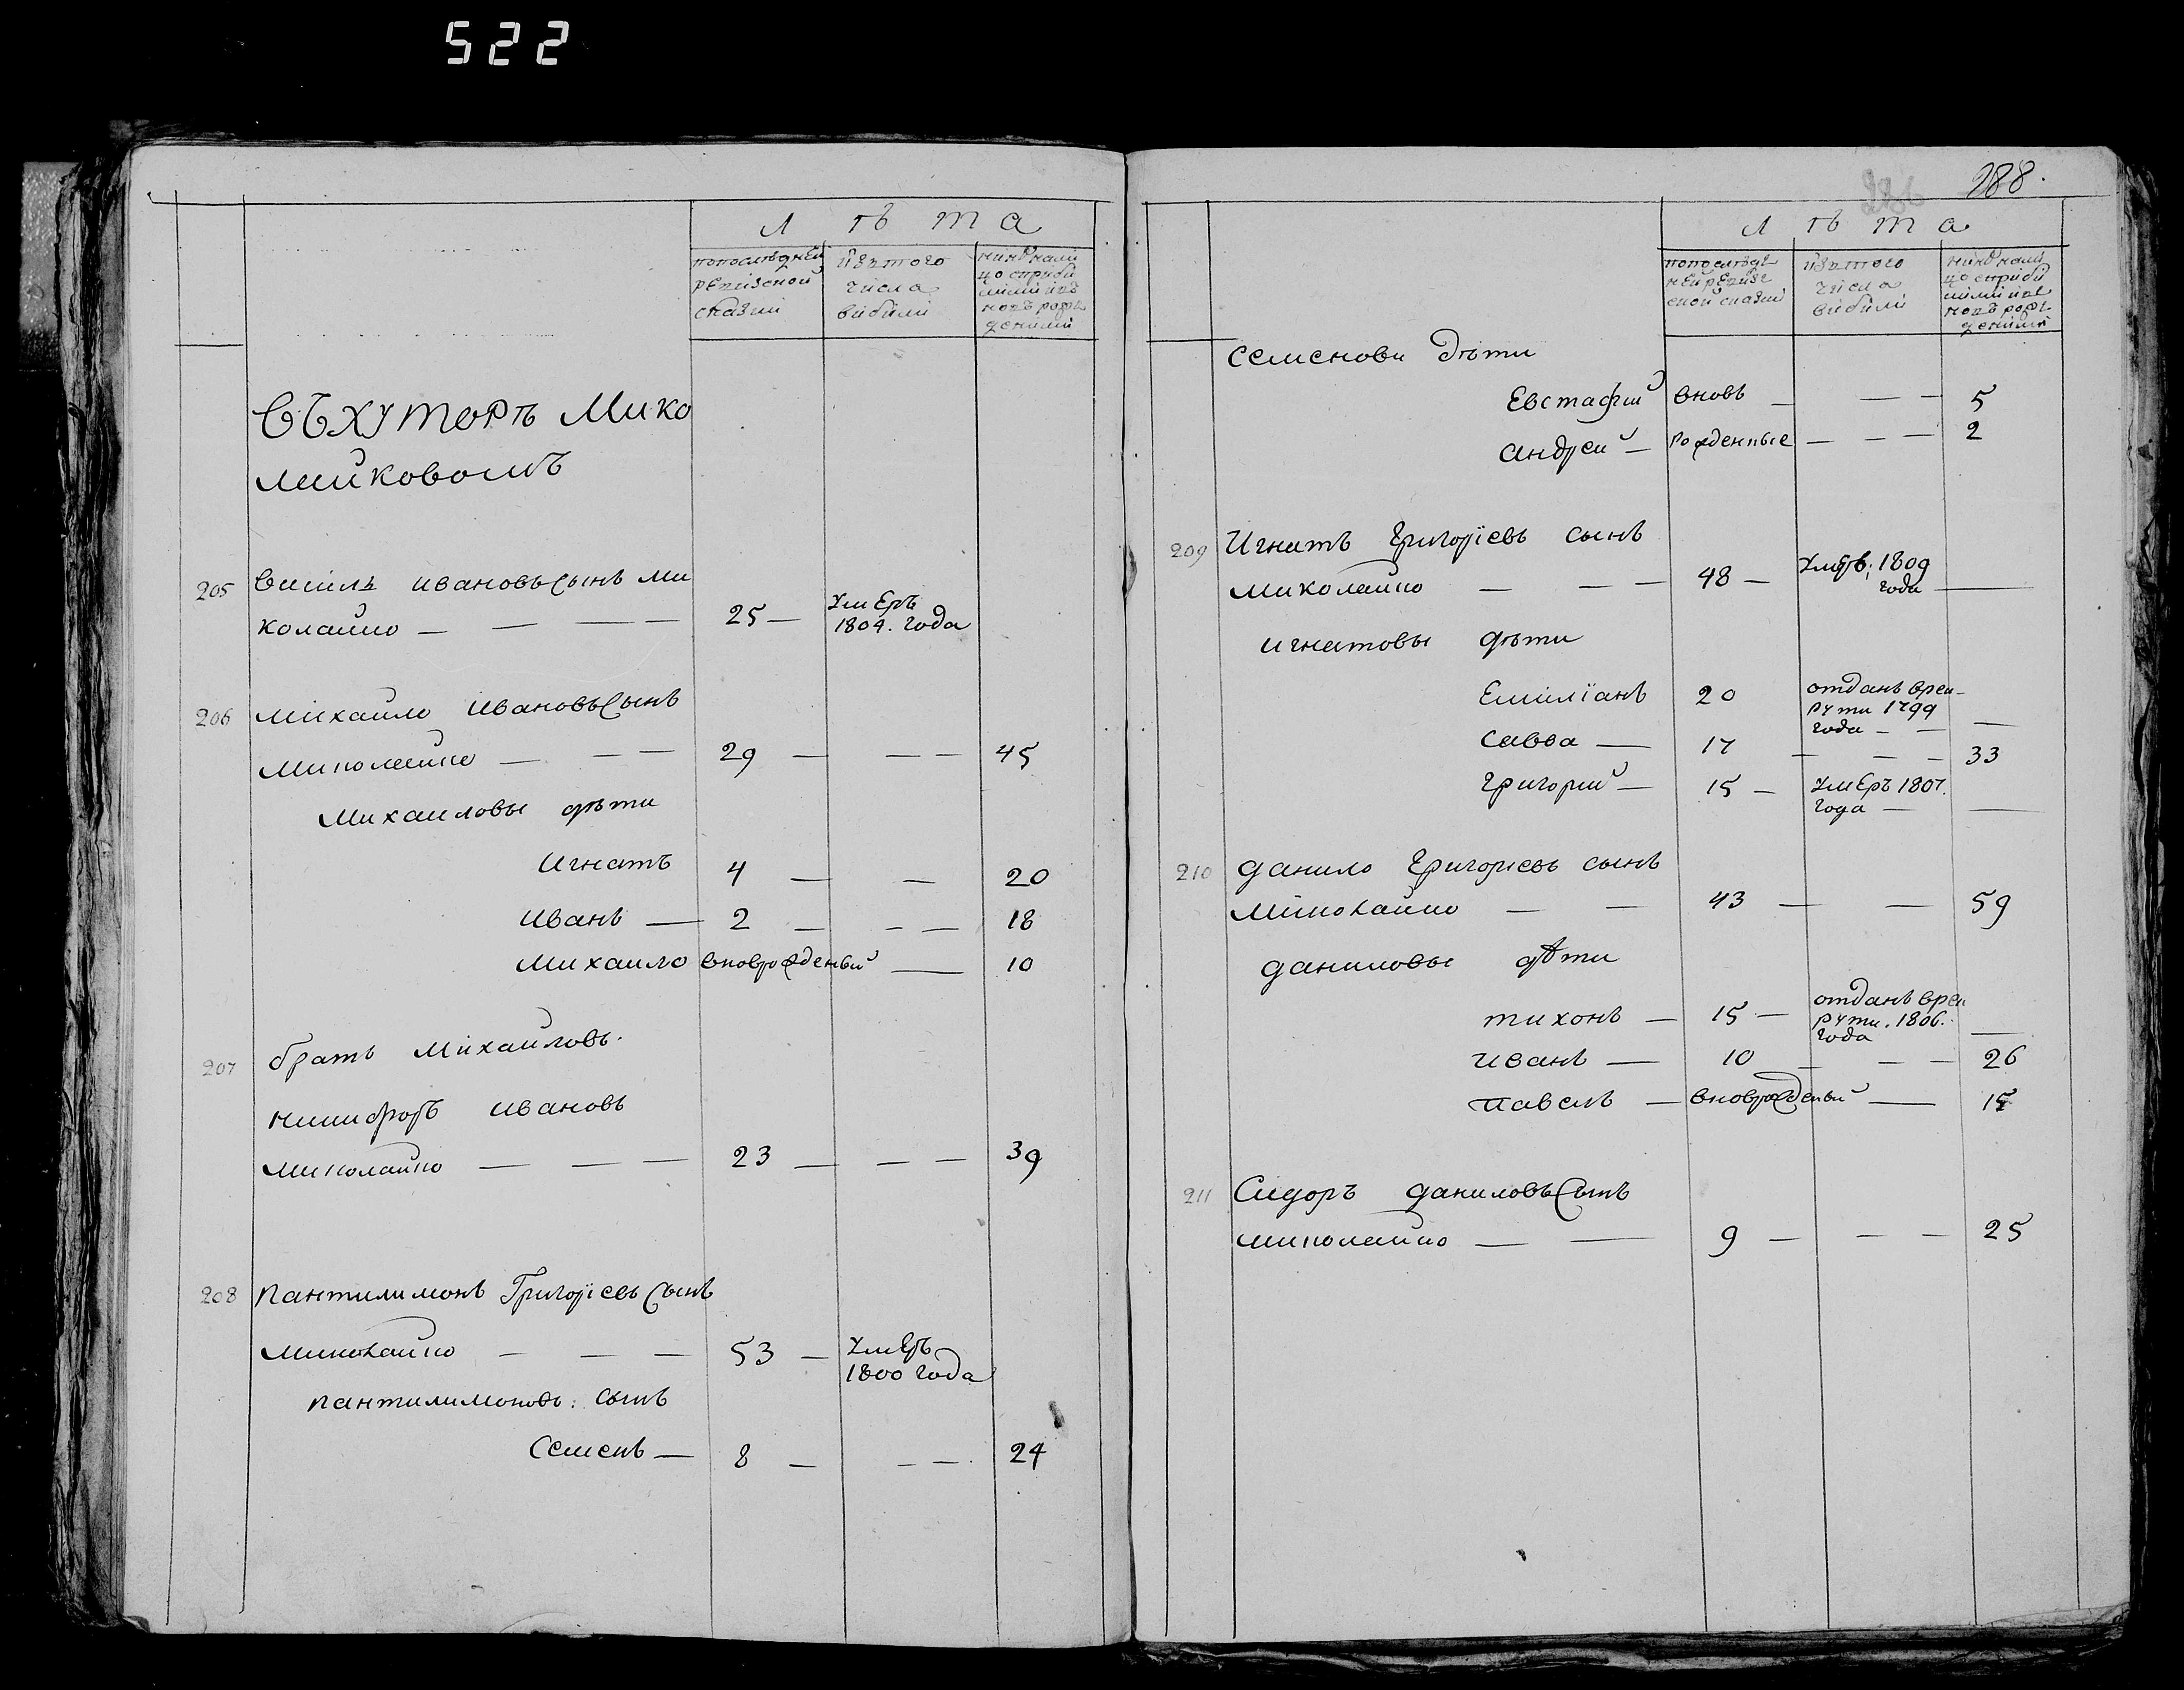 522
л ѣ т а
попоследней
ревизской
сказки
изътого
числа
вибили
нинѣ нали
цо
Въ хуторѣ Мико
лайковомъ
205 Василь ивановъ сынъ ми
колайко — — — — 25 — умеръ
1804. года
206 михайло ивановъ сынъ
миколайко — — — 29 — — — 45
михаиловы дѣти
игнатъ 4 — — 20
иванъ — 2 — — — 18
михаило вновь рожденый — 10
207 братъ михайловъ.
никифоръ ивановъ
миколайко — — — 23 — — — 39
208 пантилимонъ Григоріевъ сынъ
миколайко — — — 53 — умеръ
1800 года
пантилимоновъ: сынъ
Семенъ — 8 — — — 24
288.
286
л ѣ т а
попослѣд
ней ревиз
ской сказки
изътого
числа
вибили
нинѣ нали
цо
семенови дѣти
Евстафии вновь — — — 5
андрей — рожденные — — — 2
209 Игнатъ Григоріевъ сынъ
миколайко — — — 48 — умеръ; 1809
года —
игнатовы дѣти
Емиліанъ 20 отданъ врек
рути 1799
года — — —
савва — 17 — — — 33
григорий — 15 — умеръ 1807.
года — —
210 данило Григориевъ сынъ
миколайко — — 43 — — 59
даниловы дѣти
тихонъ — 15 — отданъ врек
рути. 1806.
года —
иванъ — 10 — — — 26
павелъ — вновь рожденый — 15
211 Сидоръ даниловъ сынъ
миколайко — — 9 — — — 25